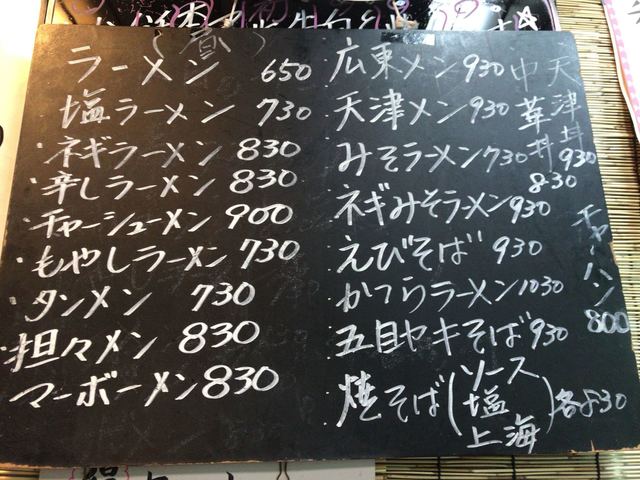 (昼)
ラーメン 650
塩ラーメン 730
・ネギラーメン 830
・辛しラーメン 830
・チャーシューメン 900
・もやしラーメン 730
・タンメン 730
・担々メン 830
マーボーメン 830
広東メン 930
天津メン 930
みそラーメン 730
ネギみそラーメン 930
えびそば 930
かつらラーメン 1030
五目ヤキそば 930
焼そば(ソース 塩 上海)各830
中華丼 830
天津丼 930
チャーハン 800